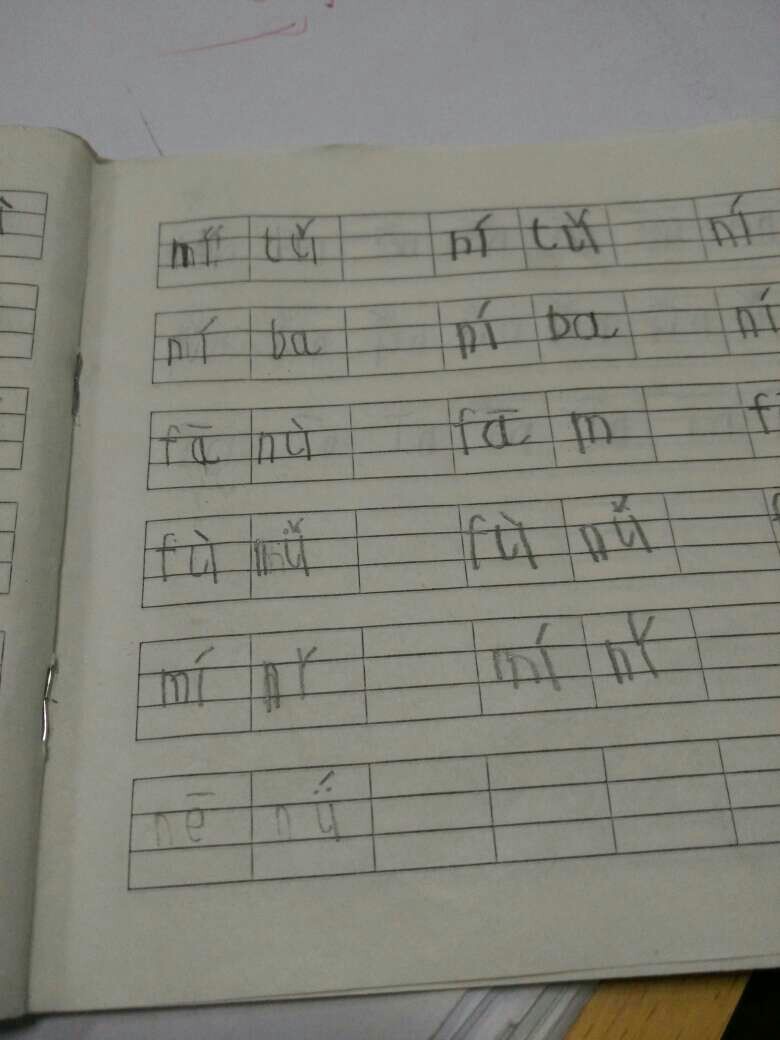 ní tǔ ní tǔ ní
ní ba ní ba ní
fā nù fā n
fù nǚ fù nǚ
mí nǐ mí nǐ
nē nǘ